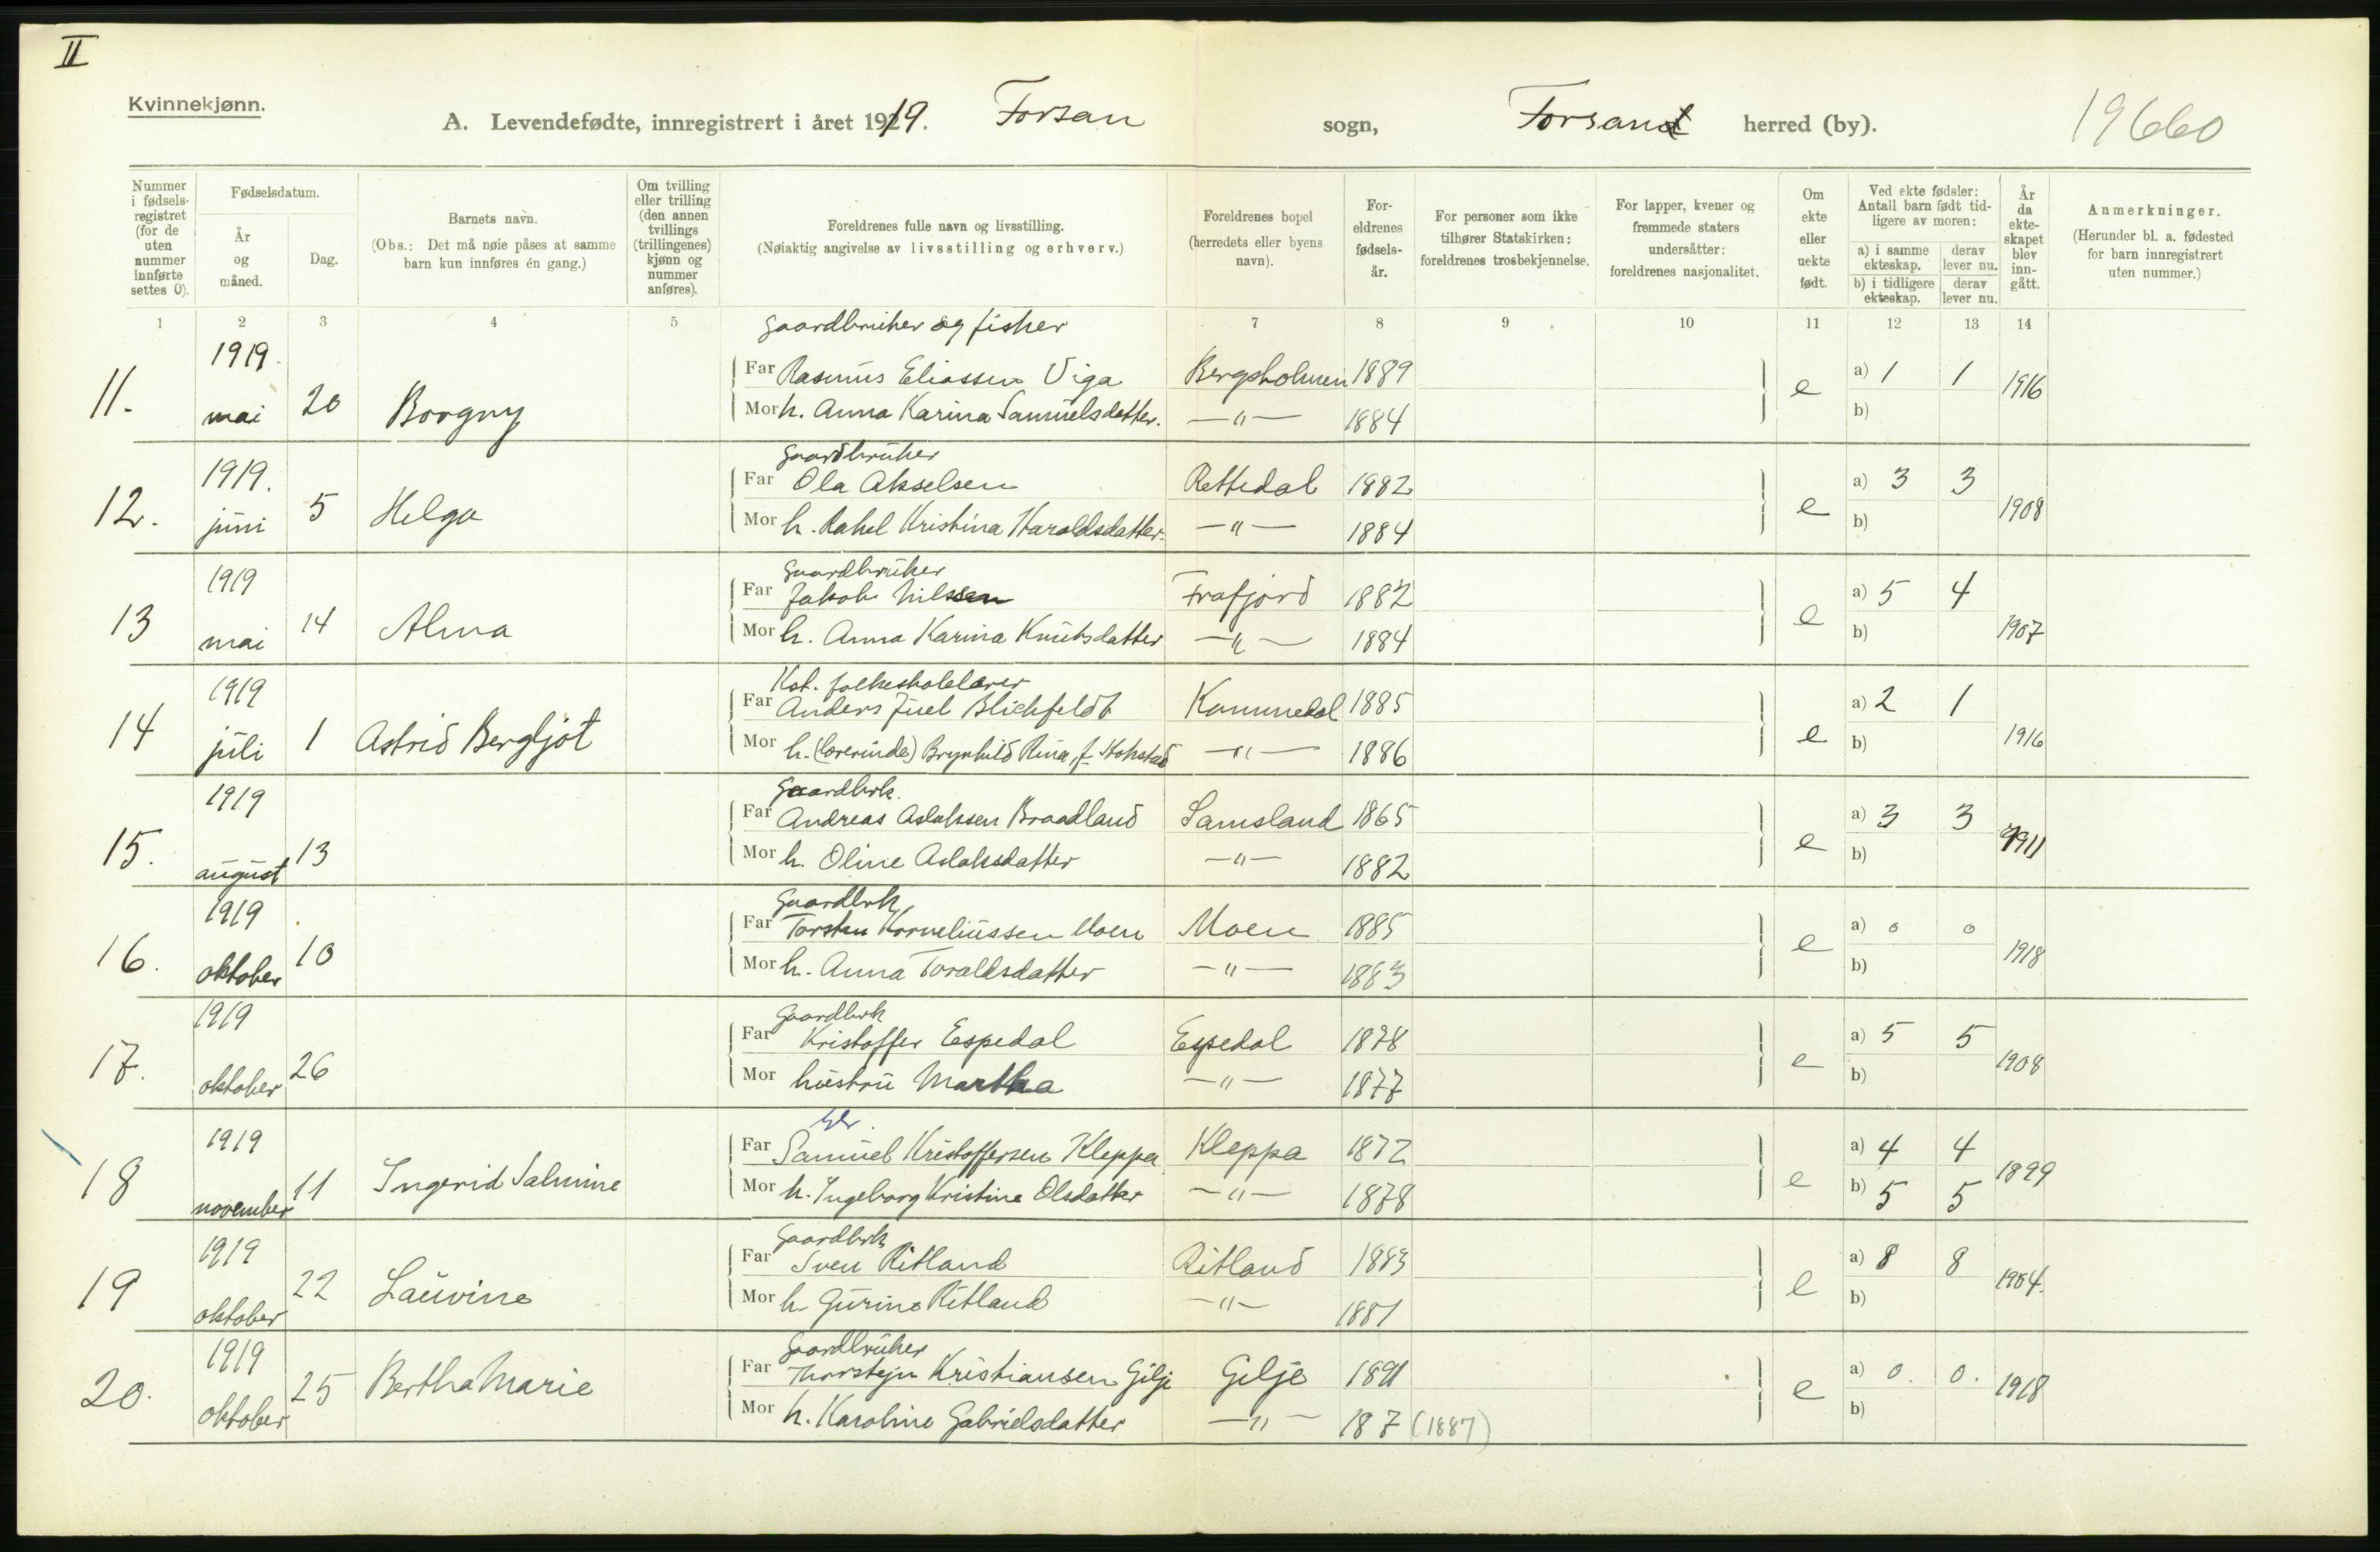 II
Kvinnekjønn.
A. Levendefødte, innregistrert i året 1919. Forsan sogn, Forsand herred (by). 19660
Nummer i fødsels-registret (for de uten nummer innførte settes 0).
Fødselsdatum.
År og måned.
Dag.
Barnets navn.
(Obs.: Det må nøie påses at samme barn kun innføres én gang.)
Om tvilling eller trilling (den annen tvillings (trillingenes) kjønn og nummer anføres).
Foreldrenes fulle navn og livsstilling.
(Nøiaktig angivelse av livsstilling og erhverv.)
Foreldrenes bopel (herredets eller byens navn).
For-eldrenes fødsels-år.
For personer som ikke tilhører Statskirken: foreldrenes trosbekjennelse.
For lapper, kvener og fremmede staters undersåtter: foreldrenes nasjonalitet.
Om ekte eller uekte født.
Ved ekte fødsler: Antall barn født tid-ligere av moren:
a) i samme ekteskap. derav lever nu.
b) i tidligere ekteskap. derav lever nu.
År da ekte-skapet blev inn-gått.
Anmerkninger.
(Herunder bl. a. fødested for barn innregistrert uten nummer.)
1 2 3 4 5 7 8 9 10 11 12 13 14
gaardbruker og fisker
1919.
Far Rasmus Eliassen Viga Bergsholmen 1889
11. mai 20 Borgny e a) 1 1 1916
Mor h. Anna Karina Samuelsdatter. —"— 1884 b)
gaardbruker
1919.
Far Ola Akselsen Rettedal 1882 a) 3 3
12. juni 5 Helga e 1908
Mor h. Rakel Kristina Haraldsdatter. —"— 1884 b)
gaardbruker
1919
Far Jakob Nilssen Frafjord 1882 a) 5 4
13 mai 14 Alma e 1907
Mor h. Anna Karina Knutsdatter —"— 1884 b)
Kst. folkeskolelærer
1919
Far Anders Juel Blichfeldt Kommedal 1885 a) 2 1
14 juli 1 Astrid Bergljot e 1916
Mor h. (lærerinde) Brynhild Rina, f. Hokstad —"— 1886 b)
Gaardbrk.
1919
Far Andreas Aslaksen Braadland Samsland 1865 a) 3 3
15. august 13 e 1911
Mor h. Oline Aslaksdatter —"— 1882 b)
Gaardbrk
1919
Far Torsten Korneliussen Moen Moen 1885 a) 0 0
16. oktober 10 e 1918
Mor h. Anna Toraldsdatter —"— 1883 b)
Gaardbrk
1919
Far Kristoffer Espedal Espedal 1878 a) 5 5
17. oktober 26 e 1908
Mor hustru Martha —"— 1877 b)
1919
Far Samuel Kristoffersen Kleppa Kleppa 1872 a) 4 4
18 november 11 Ingerid Salmine e 1899
Mor h. Ingeborg Kristine Olsdatter —"— 1878 b) 5 5
Gaardbrk
1919
Far Sven Ritland Ritland 1883 a) 8 8
19 oktober 22 Lauvine e 1904.
Mor h. Gurine Ritland —"— 1881 b)
Gaardbruker
1919
Far Thorstejn Kristiansen Gilje Gilje 1891 a) 0. 0.
20. oktober 25 Bertha Marie e 1918
Mor h. Karoline Gabrielsdatter —"— 187 (1887) b)